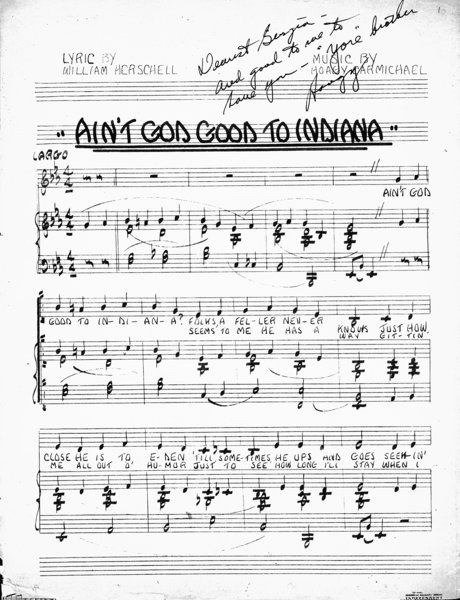 Dearest Georgia -
and good to me to
have you - "Yore" brother
Hoagy
LYRIC BY
WILLIAM HERSCHELL
MUSIC BY
HOAGY CARMICHAEL
"AIN'T GOD GOOD TO INDIANA"
LARGO
AIN'T GOD
GOOD TO IN-DI-AN-A? FOLKS, A FEL-LER NEV-ER KNOWS JUST HOW
SEEMS TO ME HE HAS A WAY GIT-TIN
CLOSE HE IS TO E-DEN 'TILL SOME-TIMES HE UPS AND GOES SEEK-IN'
ME ALL OUT O' HU-MOR JUST TO SEE HOW LONG I'LL STAY WHEN I